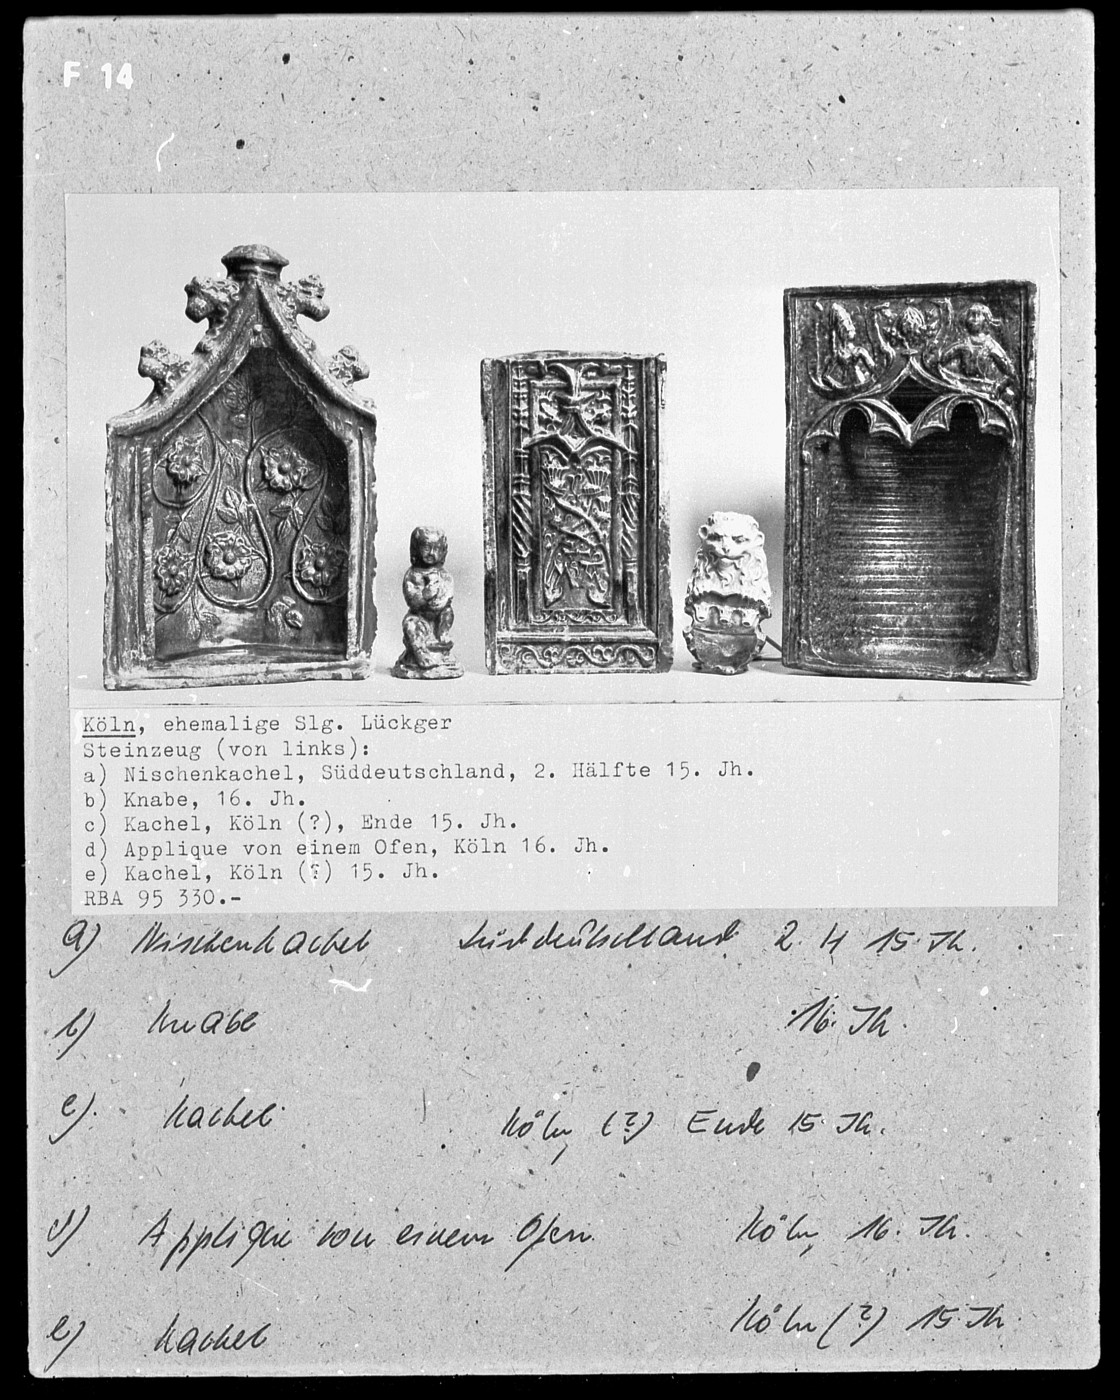 F 14
Köln, ehemalige Slg. Lückger
Steinzeug (von links):
a) Nischenkachel, Süddeutschland, 2. Hälfte 15. Jh.
b) Knabe, 16. Jh.
c) Kachel, Köln (?), Ende 15. Jh.
d) Applique von einem Ofen, Köln 16. Jh.
e) Kachel, Köln (?) 15. Jh.
RBA 95 330.-
a) Nischenkachel Süddeutschland 2. H 15. Jh.
b) Knabe 16. Jh.
c). Kachel Köln, (?) Ende 15. Jh.
d) Applique von einem Ofen. Köln, 16. Jh.
e) Kachel Köln (?) 15. Jh